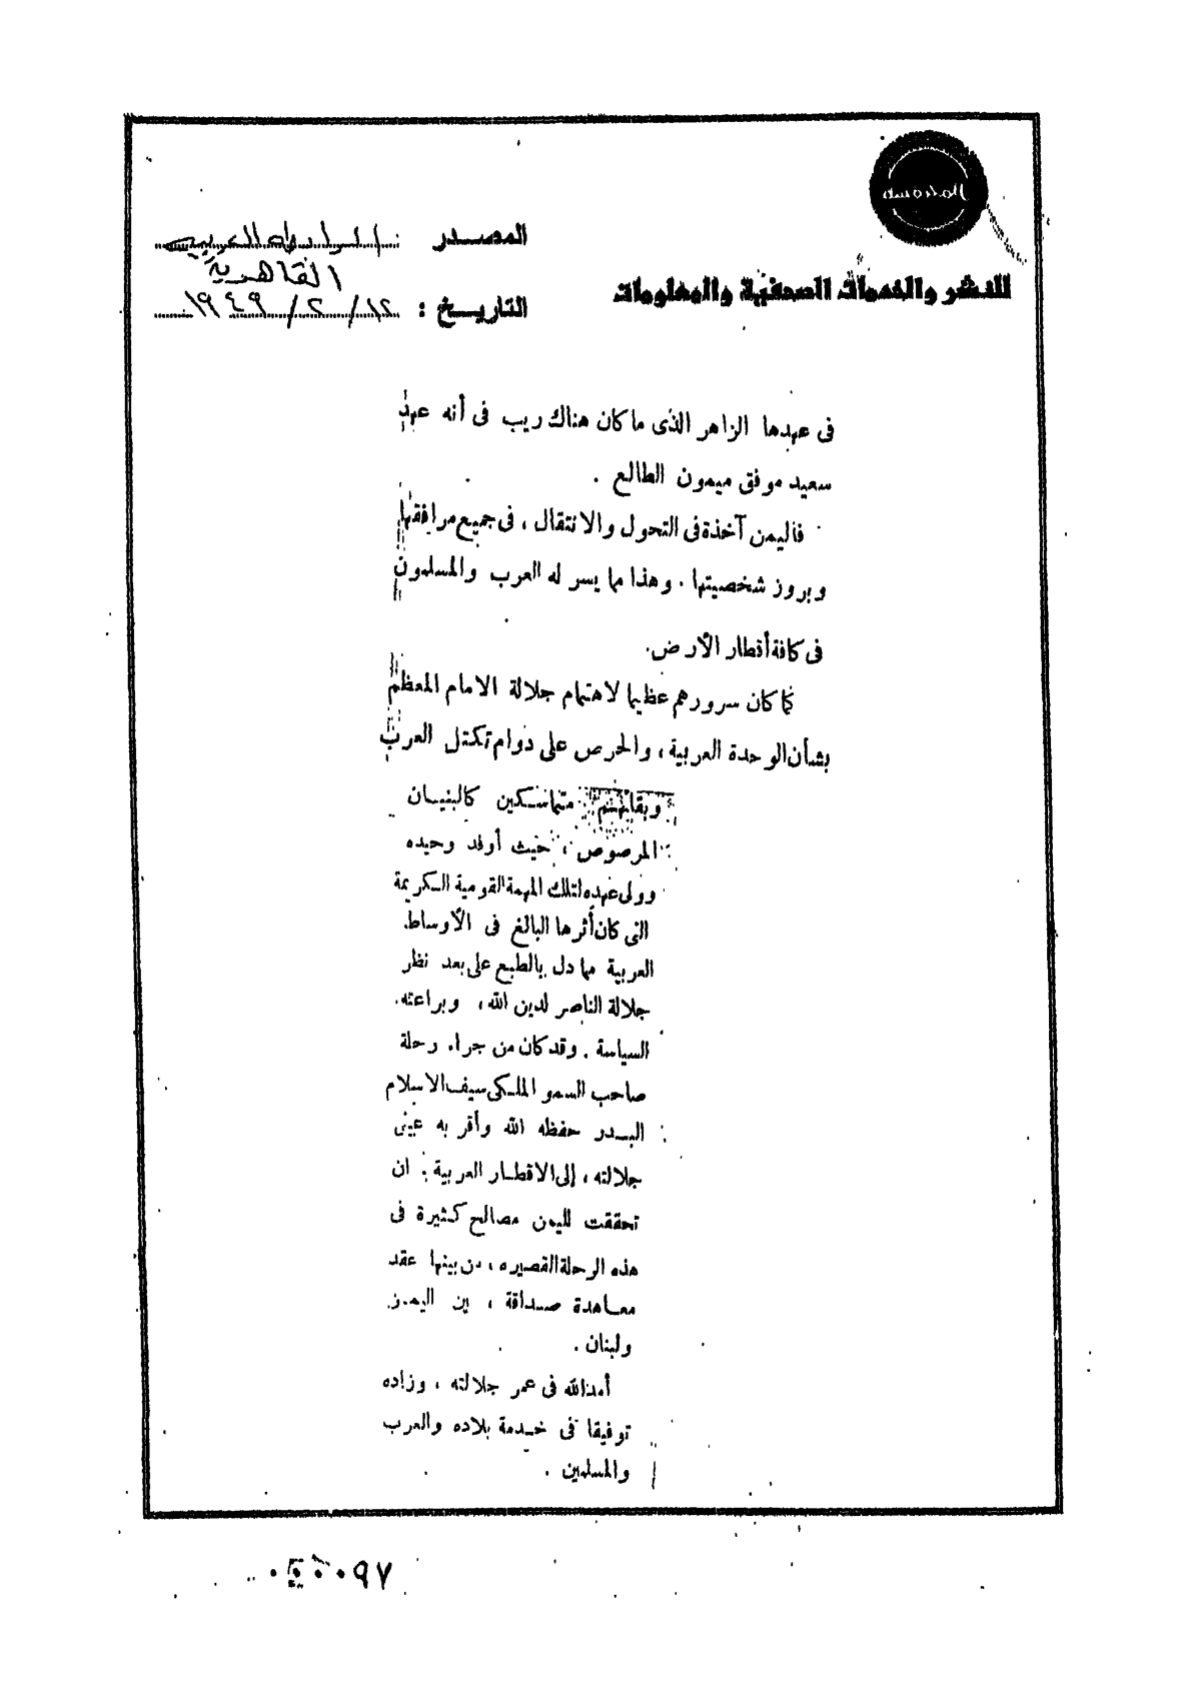 للنشر والخدمات الصحفية والمعلومات
المصدر : الرابطة العربية
القاهرية
التاريخ : ١٢ / ٢ / ١٩٤٩
فى عهدها الزاهر الذى ما كان هناك ريب فى أنه عهد
سعيد موفق ميمون الطالع .
فاليمن آخذة فى التحول والانتقال ، فى جميع مرافقها
وبروز شخصيتها . وهذا مما يسر له العرب والمسلمون
فى كافة أقطار الأرض .
كما كان سرورهم عظيما لاهتمام جلالة الامام المعظم
بشأن الوحدة العربية ، والحرص على دوام تكتل العرب
وبقائهم متماسكين كالبنيان
المرصوص ، حيث أوفد وحيده
وولى عهده لتلك المهمة القومية الكريمة
التى كان أثرها البالغ فى الأوساط
العربية مما دل بالطبع على بعد نظر
جلالة الناصر لدين الله ، وبراعته
السياسة . وقد كان من جراء رحلة
صاحب السمو الملكى سيف الاسلام
البدر حفظه الله وأقر به عينى
جلالته ، إلى الاقطار العربية : ان
تحققت لليمن مصالح كثيرة فى
هذه الرحلة القصيره ، من بينها عقد
معاهدة صداقة ، بين اليمن
ولبنان .
أمد الله فى عمر جلالته ، وزاده
توفيقا فى خدمة بلاده والعرب
والمسلمين .